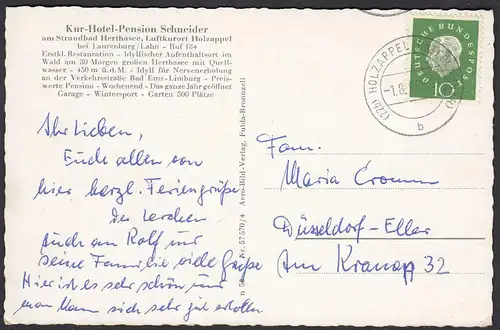 Kur-Hotel-Pension Schneider
am Strandbad Herthasee, Luftkurort Holzappel
bei Laurenburg/Lahn - Ruf 184
Erstkl. Restauration - Idyllischer Aufenthaltsort im
Wald am 30 Morgen großen Herthasee mit Quell-
wasser - 450 m ü. d. M. - Idyll für Nervenerholung
an der Verkehrsstraße Bad Ems-Limburg - Preis-
werte Pension - Wochenend - Das ganze Jahr geöffnet
Garage - Wintersport - Garten 500 Plätze
Ihr Lieben,
Euch allen von
hier herzl. Feriengrüße
Auch an Rolf und
seine Familie viele Grüße
Hier ist es sehr schön und
man kann sich sehr gut erholen.
Nr. 57570/4 Aero-Bild-Verlag, Fulda-Bronnzell
(22b) HOLZAPPEL
b
DEUTSCHE BUNDESPOST
10
Fam.
Maria Cromm
Düsseldorf-Eller
Am Kranap 32